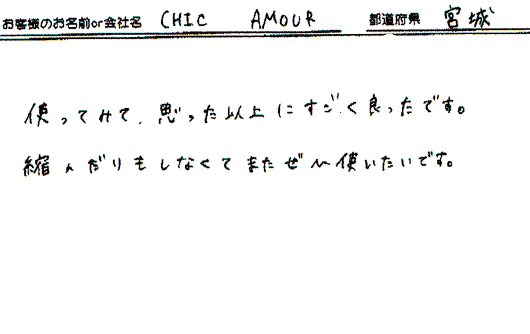 お客様のお名前or会社名 CHIC AMOUR 都道府県 宮城
使ってみて、思った以上にすごく良ったです。
縮んだりもしなくてまたぜひ使いたいです。